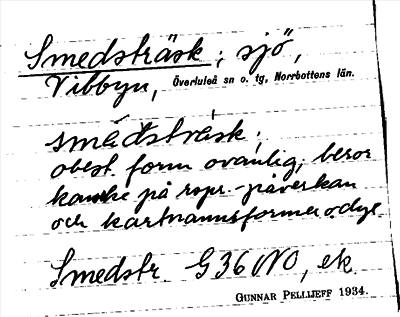 Smedsträsk; sjö,
Vibbyn, Överluleå sn o. tg, Norrbottens län.
smedstrásk;
obest. form ovanlig; beror
kanske på rspr.-påverkan
och kartnamnsformer o. dyl.
Smedstr. G36 NO, ek.
GUNNAR PELLIJEFF 1934.